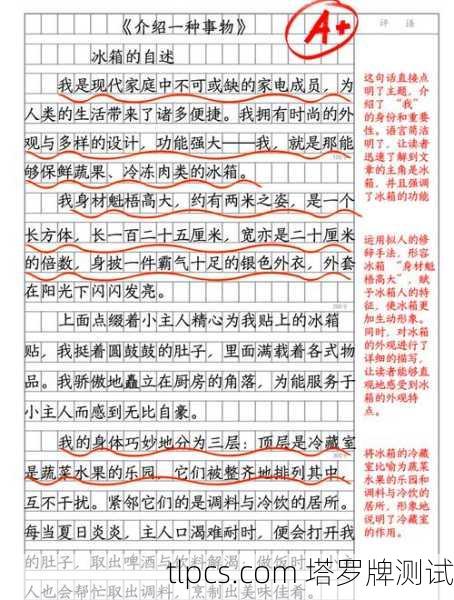 《介绍一种事物》
A+
评语
冰箱的自述
我是现代家庭中不可或缺的家电成员，为
人类的生活带来了诸多便捷。我拥有时尚的外
观与多样的设计，功能强大——我，就是那能
够保鲜蔬果、冷冻肉类的冰箱。
我身材魁梧高大，约有两米之姿，是一个
长方体，长一百二十五厘米，宽亦是二十厘米
的倍数，身披一件霸气十足的银色外衣，外套
在阳光下闪闪发亮。
上面点缀着小主人精心为我贴上的冰箱
贴，我挺着圆鼓鼓的肚子，里面满载着各式物
品。我骄傲地矗立在厨房的角落，为能服务于
小主人而感到无比自豪。
我的身体巧妙地分为三层：顶层是冷藏室
是蔬菜水果的乐园，它们被整齐地排列其中，
互不干扰。紧邻它们的是调料与冷饮的居所。
每当夏日炎炎，主人口渴难耐时，便会打开我
的肚子，取出啤酒与饮料解渴。做饭时，小主
人也会帮忙取出调料，烹制出美味佳肴。
这句话直接点
明了主题，介
绍了“我”
的身份和重要
性。语言简洁
明了，让读者
迅速了解到文
章的主角是冰
箱，并且强调
了冰箱的功能
运用拟人的修
辞手法，形容
冰箱“身材魁
梧高大”，赋
予冰箱人的特
征，使冰箱更
加生动形象。
同时，对冰箱
的外观进行了
详细的描写，
让读者能够直
观地感受到冰
箱的外观特
点。
将冰箱的冷藏
室比喻为蔬菜
水果的乐园和
调料与冷饮的
居所，形象地
说明了冷藏室
的作用。
tlpcs.com 塔罗牌测试